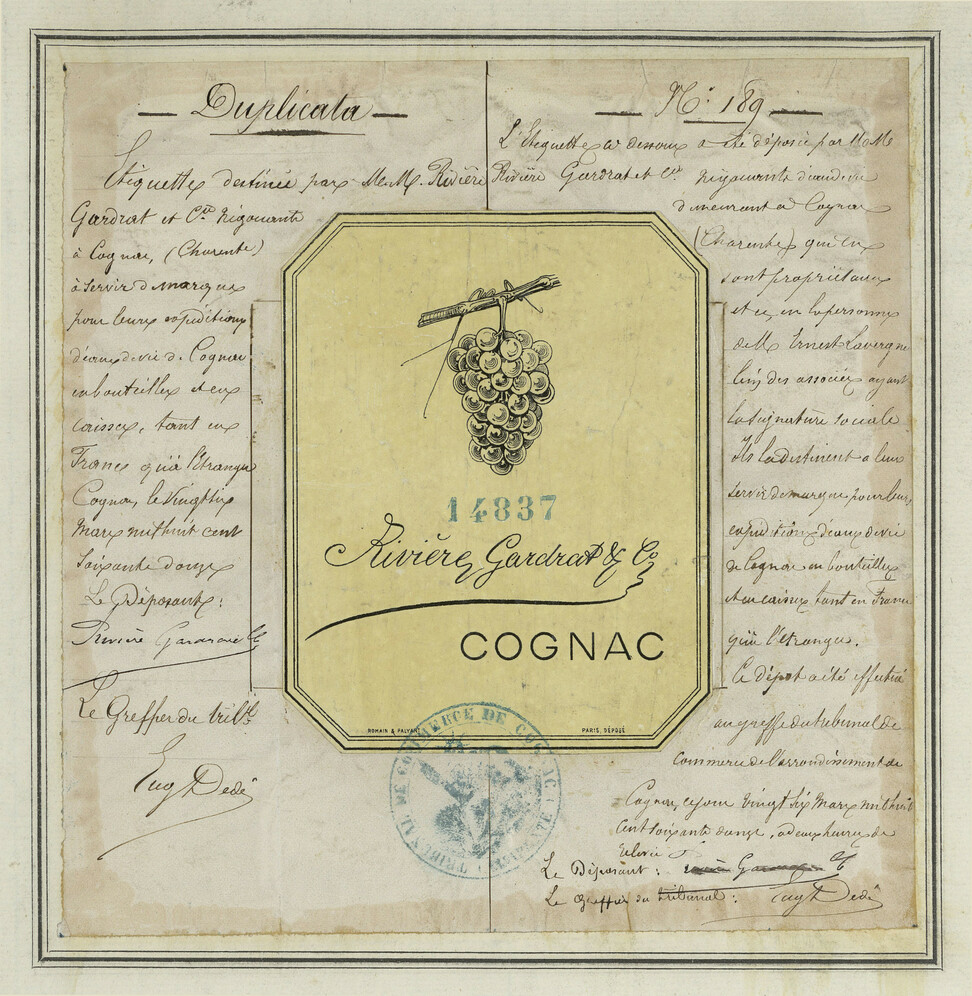 Duplicata
Etiquette destinée par M.M. Rivière
Gardrat et Cie Négociants
à Cognac, (Charente)
à servir de marque
pour leurs expéditions
d'eaux de vie de Cognac
en bouteilles et en
caisses, tant en
France qu'à l'étranger
Cognac, le vingt six
Mars mil huit cent
soixante douze
Le Déposant:
Rivière Gardrat &C
Le Greffier du trib.
Eug Dedé
No. 189
L'Etiquette ci dessous a été déposée par M.M.
Rivière Gardrat et Cie négociants d'eau de vie
demeurant à Cognac
(Charente) qui en
sont propriétaires
et ce en la personne
de M. Ernest Lavergne
l'un des associés ayant
la signature sociale
Ils la destinent à leur
servir de marque pour leurs
expéditions d'eaux de vie
de Cognac en bouteilles
et en caisses tant en France
qu'à l'étranger.
Ce dépôt a été effectué
au greffe du tribunal de
Commerce de l'arrondissement de
Cognac, ce jour vingt six Mars mil huit
cent soixante douze, à deux heures de
relevée
Le Déposant: Gardrat &C
Le Greffier du tribunal: Eug Dedé
14837
Rivière, Gardrat & Co
COGNAC
ROMAIN & PALYART PARIS, DÉPOSÉ
TRIBUNAL DE COMMERCE DE COGNAC (CHARENTE)